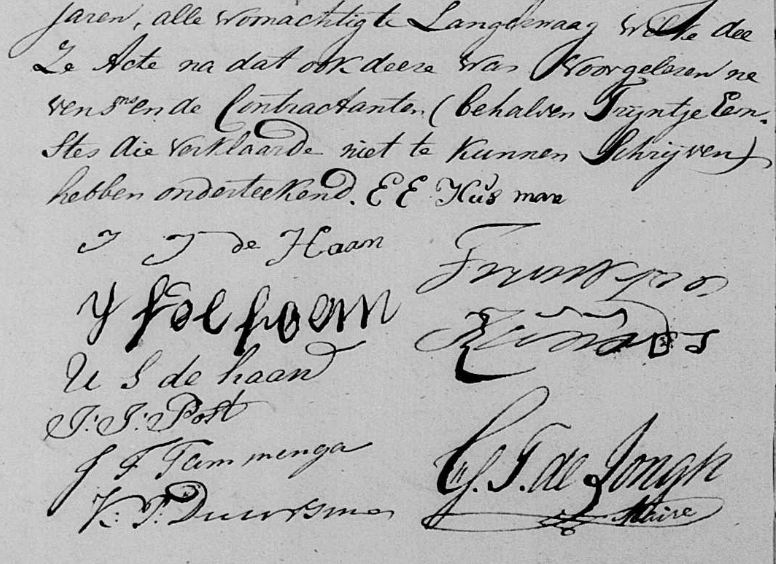 jaren, alle woonachtig te Langderaag welke dee
Ze Acte na dat ook deeze was Voorgelesen ne
vens ons en de Contractanten (behalven Trijntje Een-
stes die verklaarde niet te kunnen Schrijven)
hebben onderteekend. E E Huisman
J J de Haan
U S de haan
J: J: Post
J F Tammenga
K: P: Duursma
G. T. de Jongh
Maire